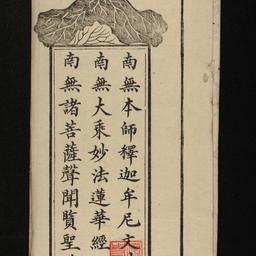 南無本師釋迦牟尼文
南無大乘妙法蓮華經
南無諸菩薩聲聞賢聖